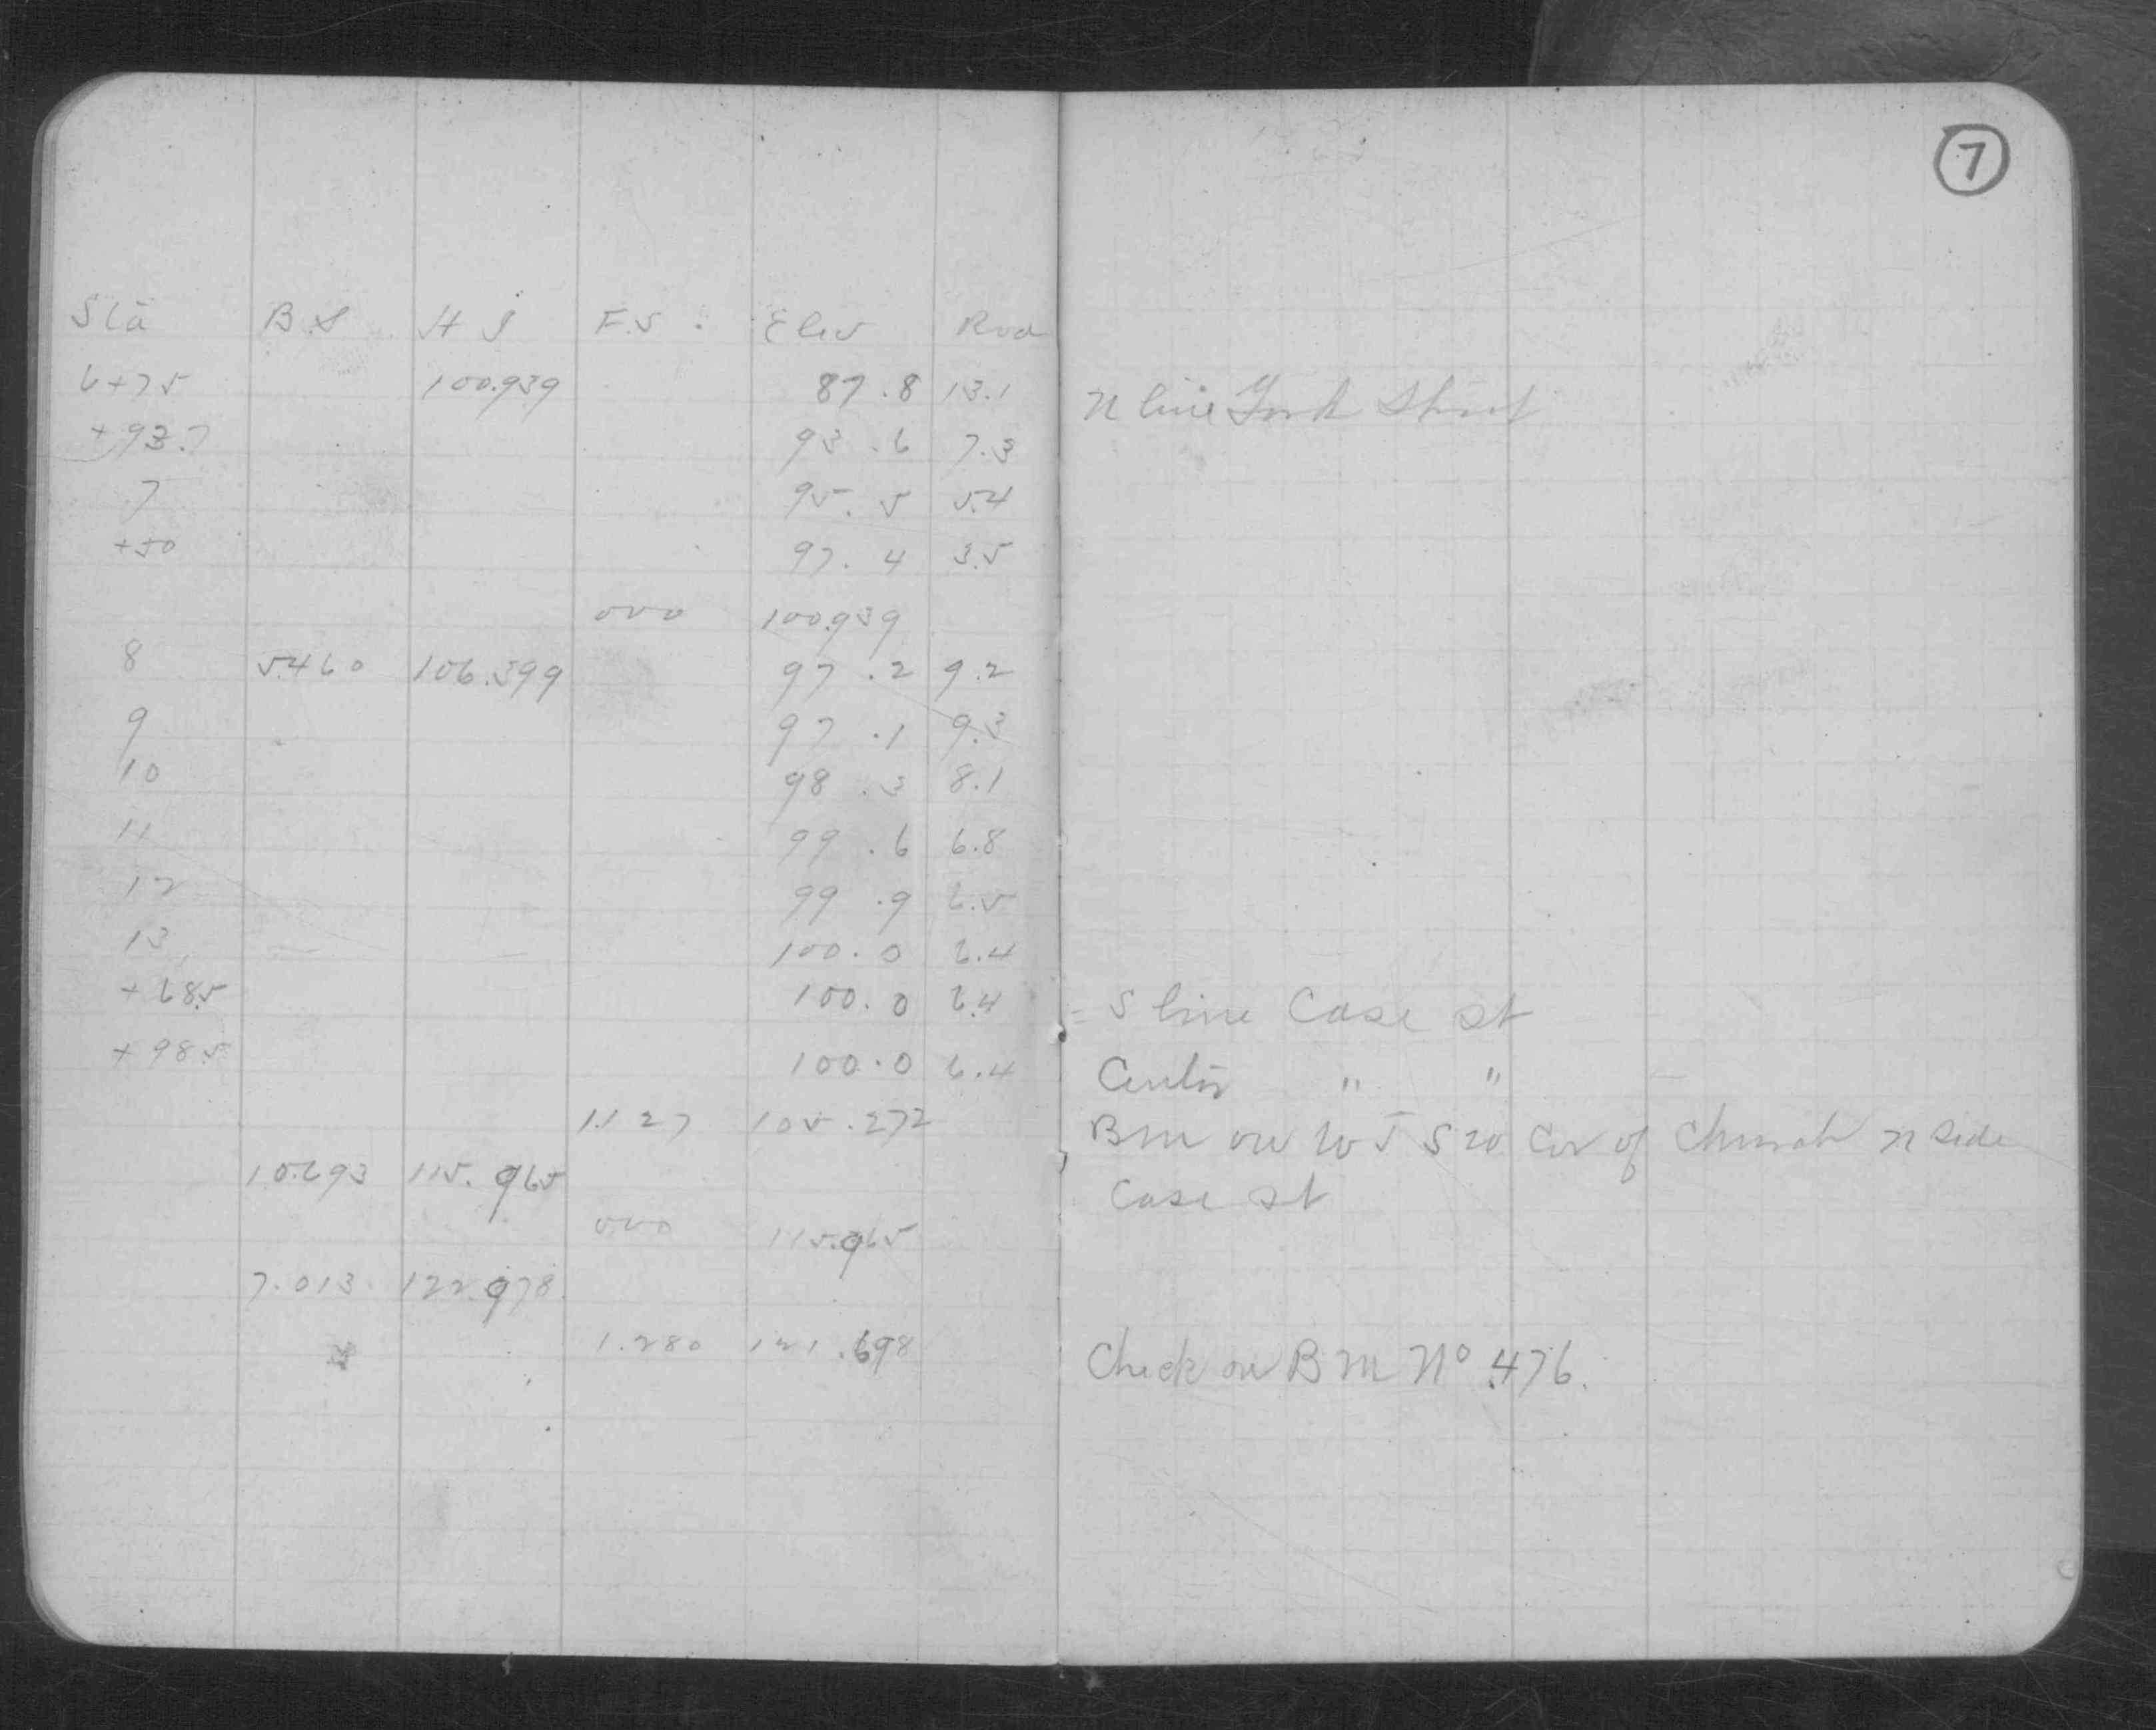 7
Sta B.S H I F.S. Elev Rod
6+75 100.939 87.8 13.1 N line York Street
+93.7 93.6 7.3
7 95.5 5.4
+50 97.4 3.5
000 100.939
8 5.460 106.399 97.2 9.2
9 97.1 9.3
10 98.3 8.1
11 99.6 6.8
12 99.9 6.5
13 100.0 6.4
+68.5 100.0 6.4 = S line Case st
+98.5 100.0 6.4 Center " "
1.127 105.272 BM on W T S W Cor of Church N side
10.693 115.965 Case st
000 115.965
7.013 122.978
1.280 121.698 Check on BM No 476.